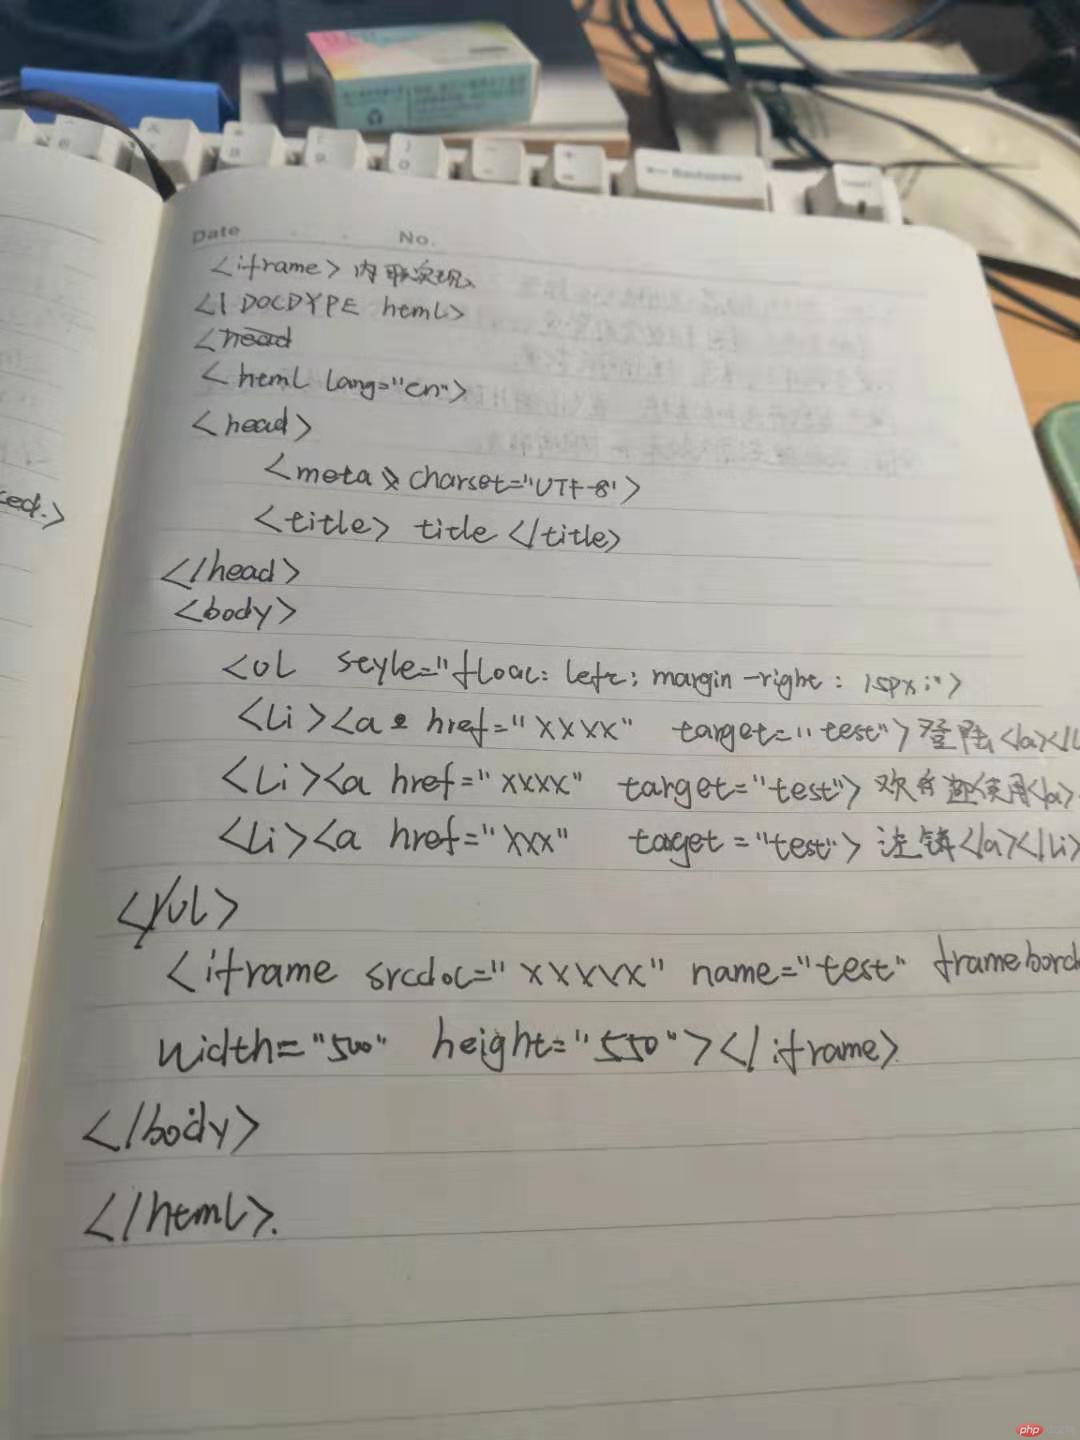 Date No.
<iframe> 内联
<! DOCDYPE html>
<head
<html lang="en">
<head>
<meta charset="UTF-8">
<title> title </title>
</head>
<body>
<ul style="float: left; margin-right: 15px;">
<li><a href="xxxx" target="test">登陆</a></l
<li><a href="xxxx" target="test">欢迎使用</a>
<li><a href="xxx" target="test">注销</a></li>
</ul>
<iframe srcdoc="xxxxx" name="test" framebord
width="500" height="550"></iframe>
</body>
</html>.
ced.>
Backspace
php